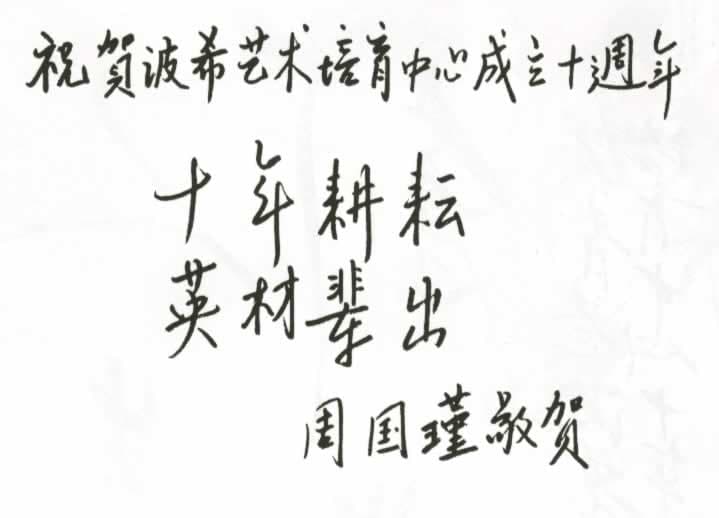 祝贺波希艺术培育中心成立十週年
十年耕耘
英材辈出
周国瑾敬贺